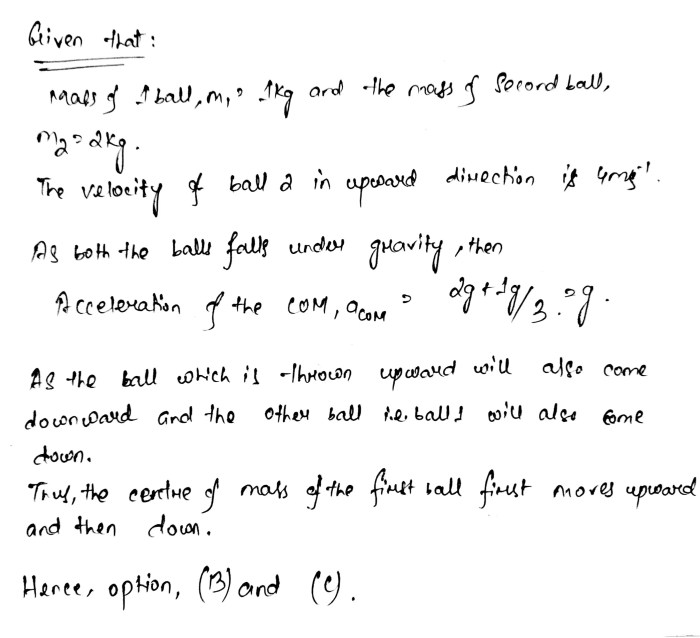 Given that:
Mass of 1 ball, m₁ = 1kg and the mass of second ball,
m₂ = 2kg.
The velocity of ball 2 in upward direction is 4ms⁻¹.
As both the balls falls under gravity, then
Acceleration of the COM, a_COM = 2g + 1g/3 = g.
As the ball which is thrown upward will also come
downward and the other ball i.e. ball 1 will also come
down.
Thus, the centre of mass of the first ball first moves upward
and then down.
Hence, option, (B) and (C).